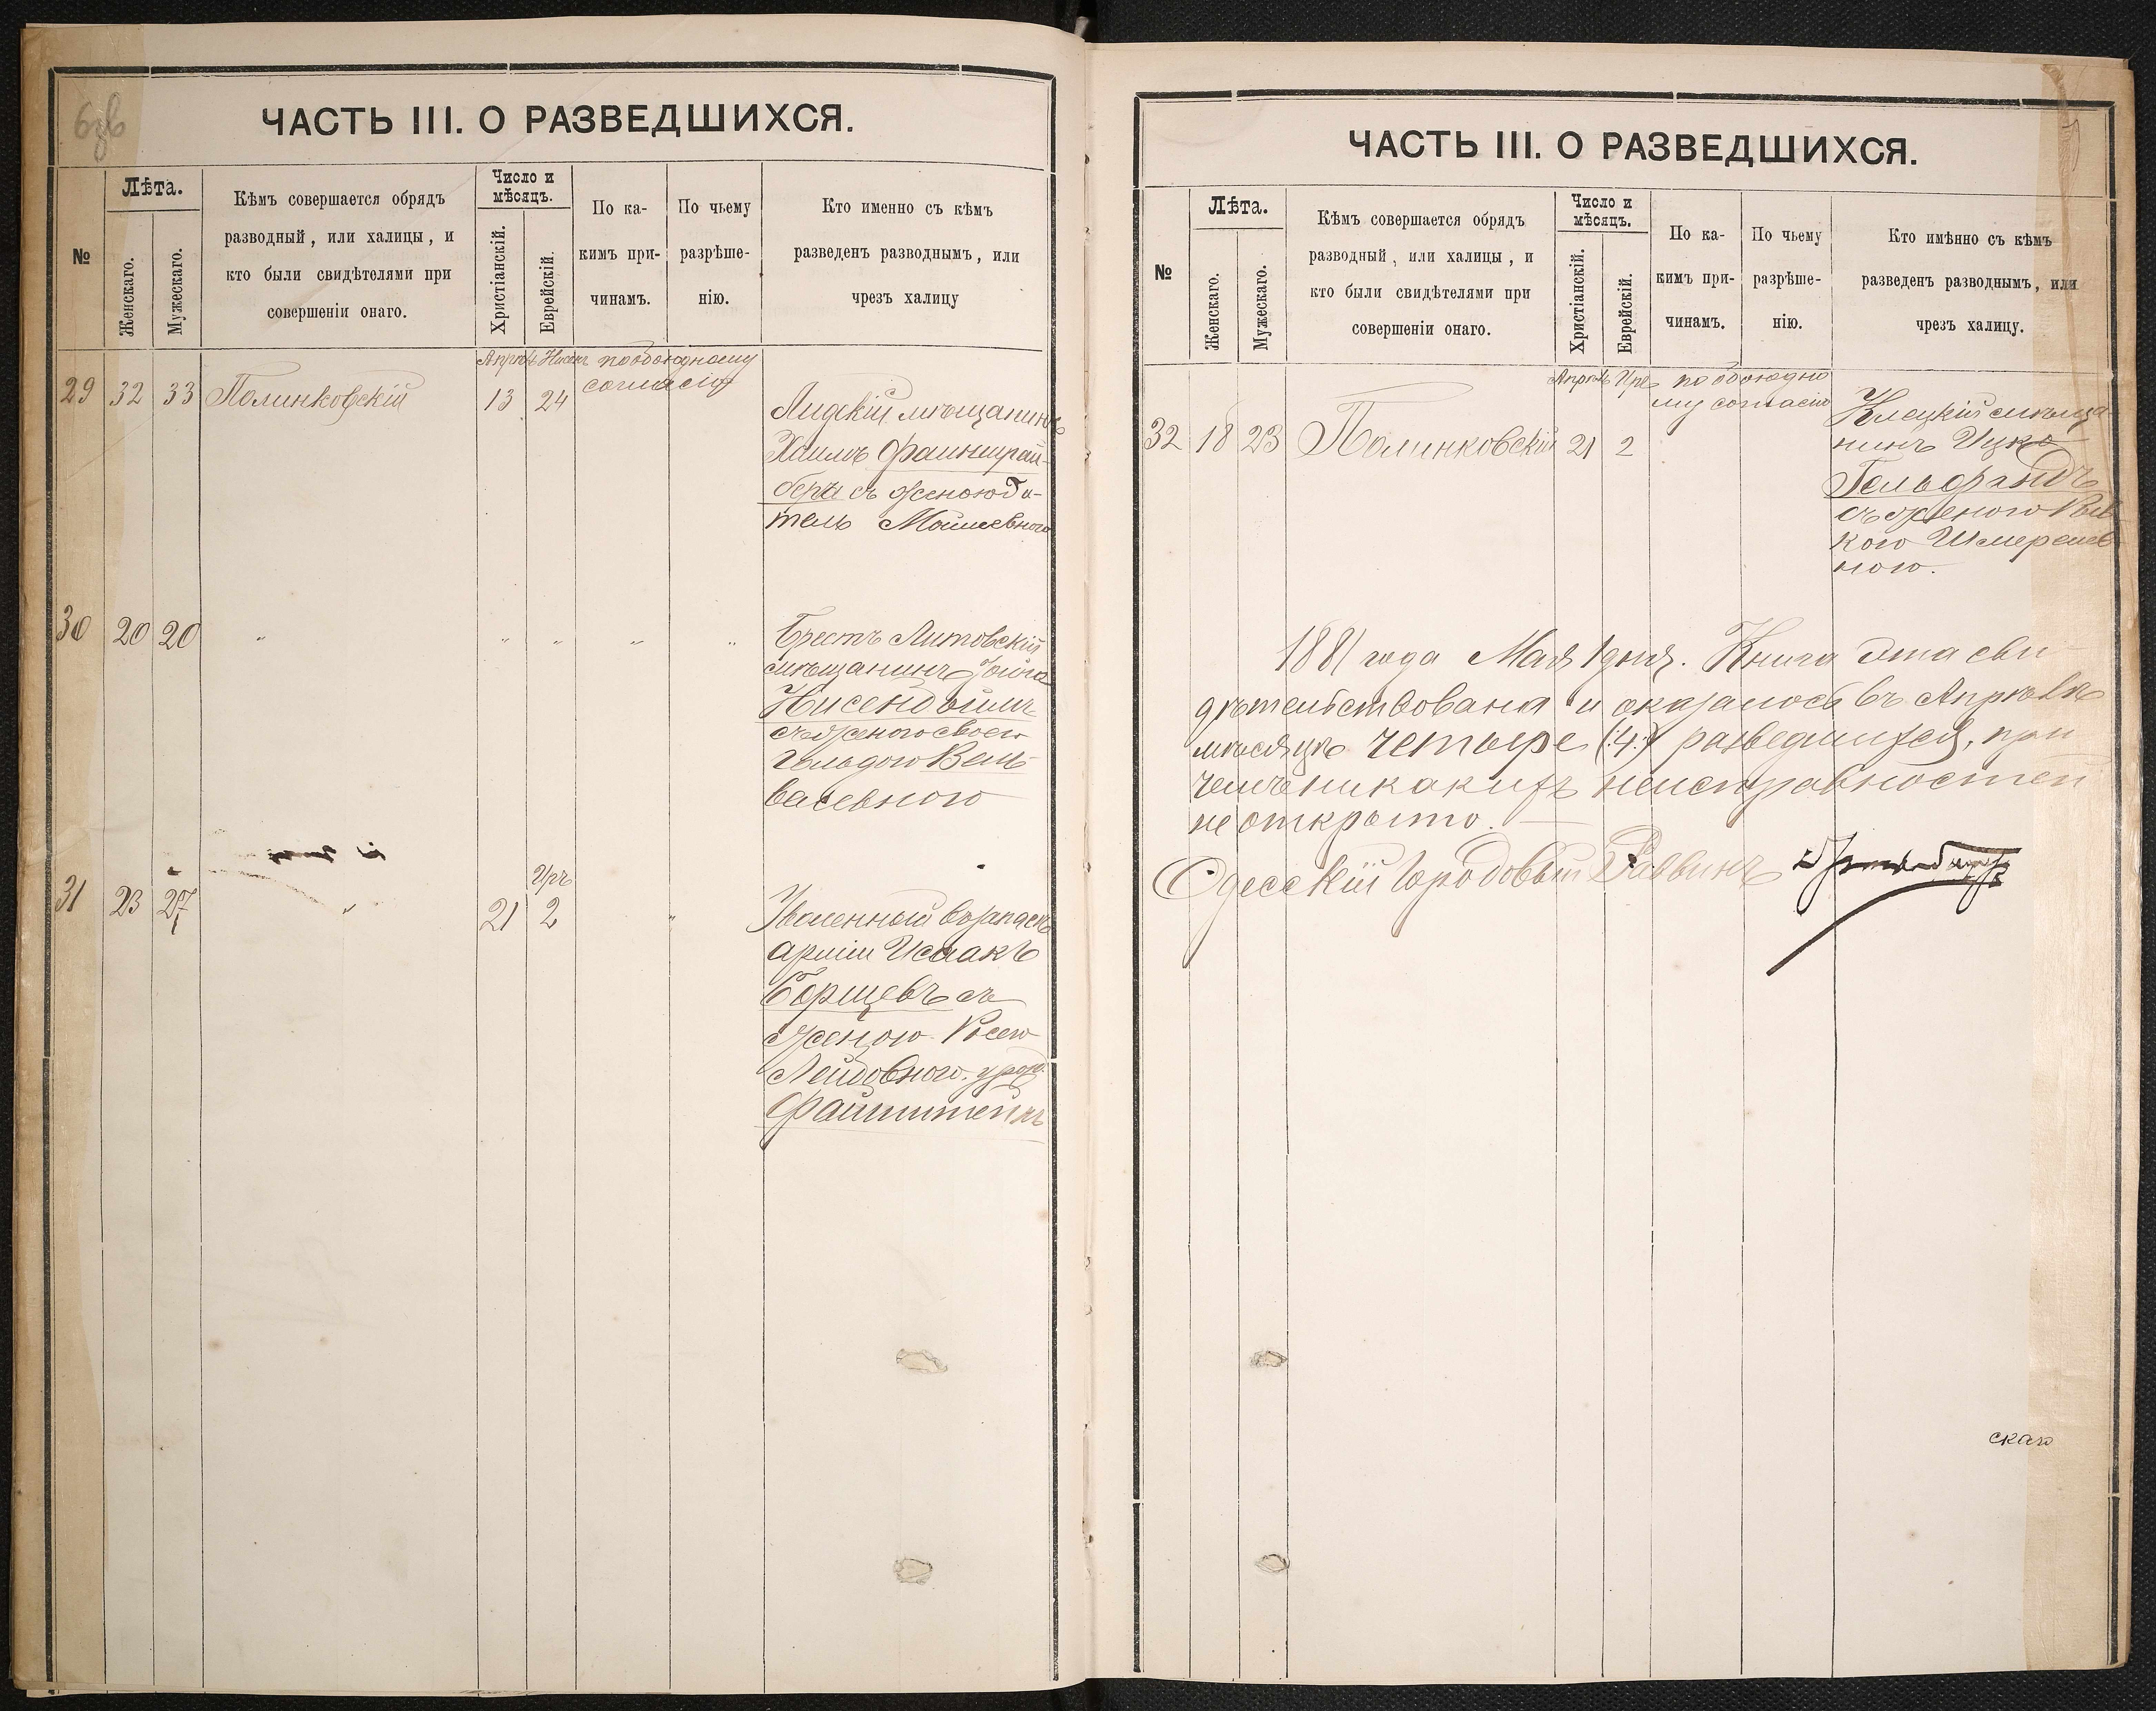 ЧАСТЬ III. О РАЗВЕДШИХСЯ.
№
Лѣта.
Женскаго.
Мужескаго.
Кѣмъ совершается обрядъ
разводный, или халицы, и
кто были свидѣтелями при
совершеніи онаго.
Число и
мѣсяцъ.
Христіанскій.
Еврейскій.
По ка-
кимъ при-
чинамъ.
По чьему
разрѣше-
нію.
Кто именно съ кѣмъ
разведенъ разводнымъ, или
чрезъ халицу
29 32 33 Полинковскій
Апрѣль Нисанъ
13 24
по обоюдному
согласію
Лидскій мѣщанинъ
Хаимъ
съ женою
Мошковною
30 20 20 " " " " "
Брестъ Литовскій
мѣщанинъ
съ женою своею
Гольдою Вель-
31 23 27 "
Иръ
21 2 "
Уволенный въ запасъ
арміи Исаакъ
Борщевъ съ
женою Росею
Лейбовною, урож.
Файнштейнъ
ЧАСТЬ III. О РАЗВЕДШИХСЯ.
№
Лѣта.
Женскаго.
Мужескаго.
Кѣмъ совершается обрядъ
разводный, или халицы, и
кто были свидѣтелями при
совершеніи онаго.
Число и
мѣсяцъ.
Христіанскій.
Еврейскій.
По ка-
кимъ при-
чинамъ.
По чьему
разрѣше-
нію.
Кто имѣнно съ кѣмъ
разведенъ разводнымъ, или
чрезъ халицу.
32 18 23 Полинковскій
Апрѣль Иръ
21 2
по обоюдно
му согласію
Клецкій мѣща
нинъ Ицко
Гельфандъ
съ женою Рив
кою Шмерелев
ною.
1881 года Мая 1 дня. Книга эта сви
дѣтельствована и оказалось въ Апрѣлѣ
мѣсяцѣ четыре (:4:) разведшихся, при
чемъ никакихъ неисправностей
не открыто.
Одесскій Городовый Раввинъ